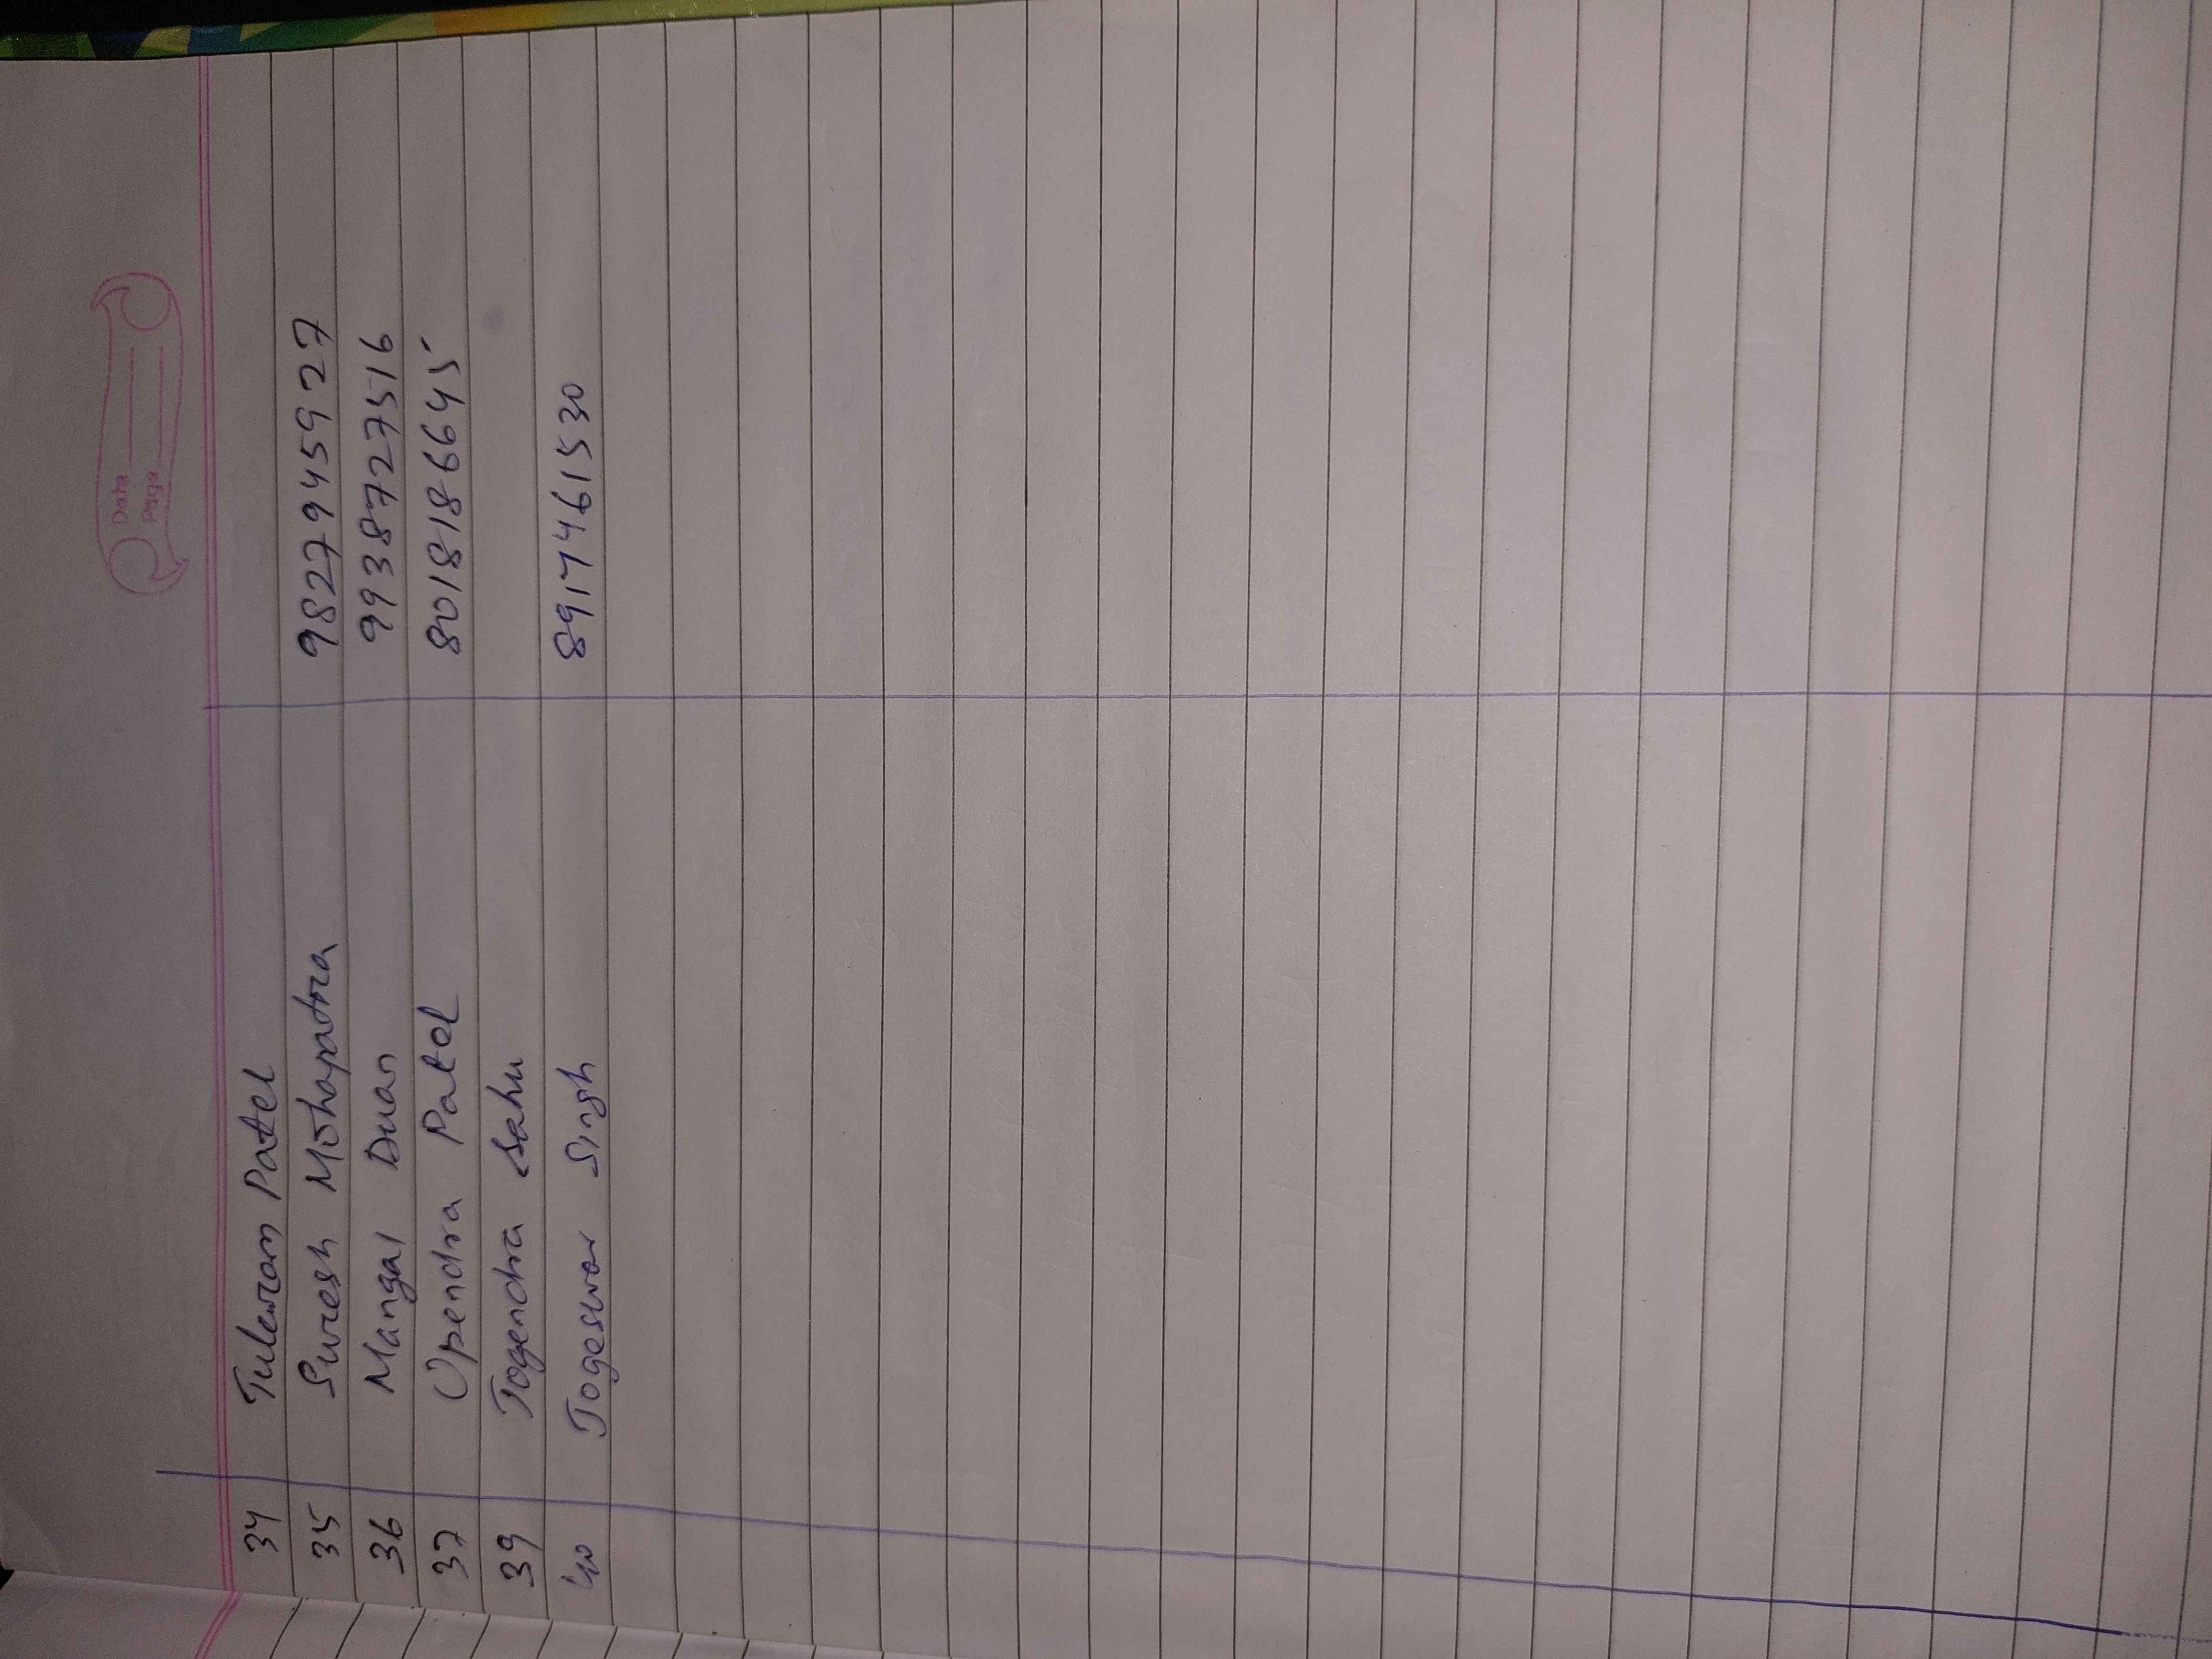 Date
Page
34 Tuleram Patel
35 Suresh Mohapatra 9827945927
36 Mangal Duan 9938727516
37 Upendra Patel 8018186645
39 Jogendra Sahu
40 Jogeswar Singh 8917461530